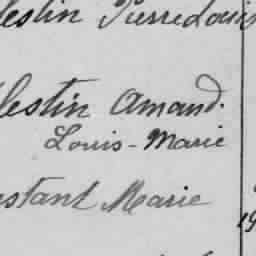 lestin Pierre Louis
lestin Amand.
Louis-Marie
stant Marie
19